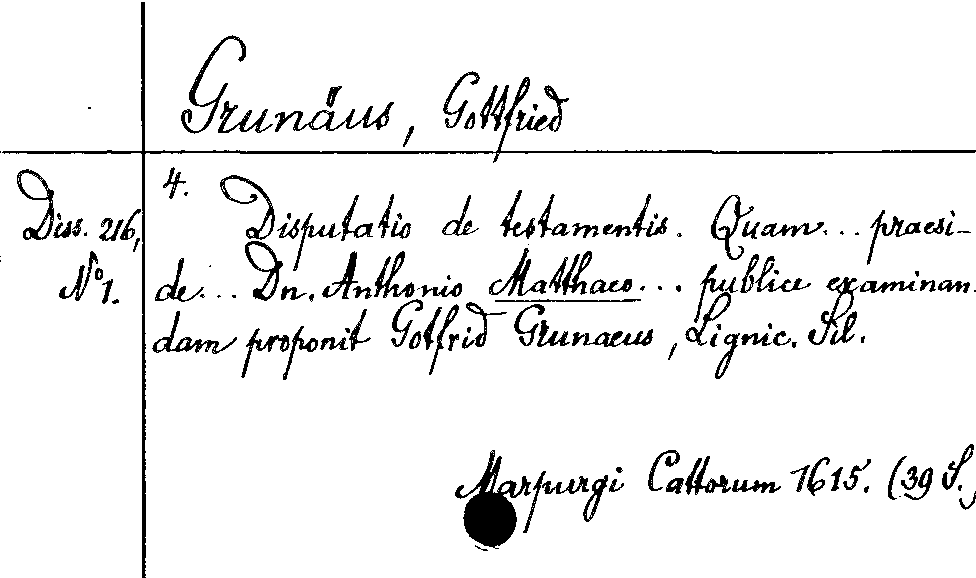 Grunäus, Gottfried
4.
Diss. 216,
Nº 1.
Disputatio de testamentis. Quam... praesi-
de... Dn. Anthonio Matthaeo... publice examinan-
dam proponit Gotfrid Grunaeus, Lignic. Sil.
Marpurgi Cattorum 1615. (39 S.)